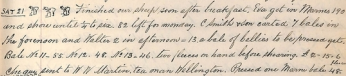 SAT 21 Finished our shop soon after breakfast. Eva got in Marnes 190
and shore until to to see 22 left for monday. C. Smith & son carted 7 bales in
the forenoon and Walter 2 in afternoon - 13 a bale of bellies to be pressed yet.
Bale No 11 - 52. No 12 - 48. No 13 - 46. two fleeces on hand before shearing. £2 - 15 -
Cheque sent to W W Martin, Tea, man Wellington. Pressed one Marnes bale 48.